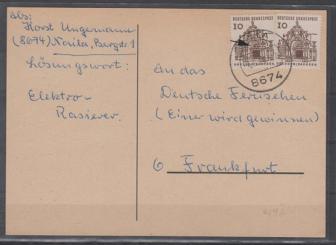 Abs:
Horst Ungemann
(8674) Naila, Bergstr. 1
Lösungswort:
Elektro-
Rasierer
10 DEUTSCHE BUNDESPOST
10 DEUTSCHE BUNDESPOST
8674
An das
Deutsche Fernsehen
(Einer wird gewinnen)
6 Frankfurt